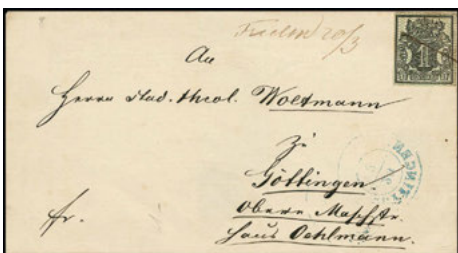 20/3
1
An
Herrn stud. theol. Woltmann
zu
Göttingen.
Obere Maschstr.
Haus Oehlmann.
fr.